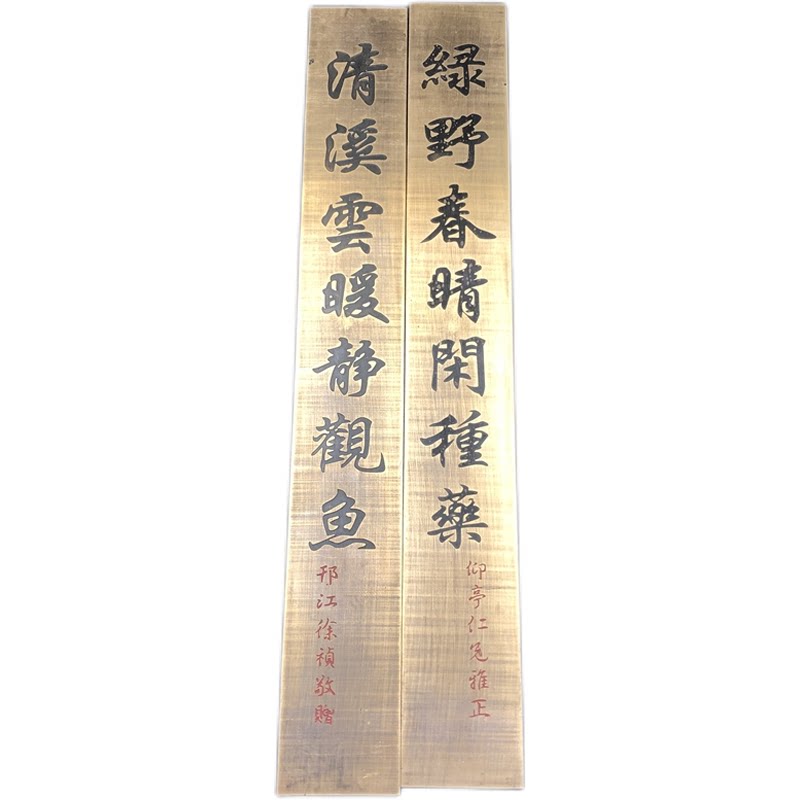 綠野春晴閑種藥
仰亭仁兄雅正
清溪雲暖靜觀魚
邗江徐禎敬贈